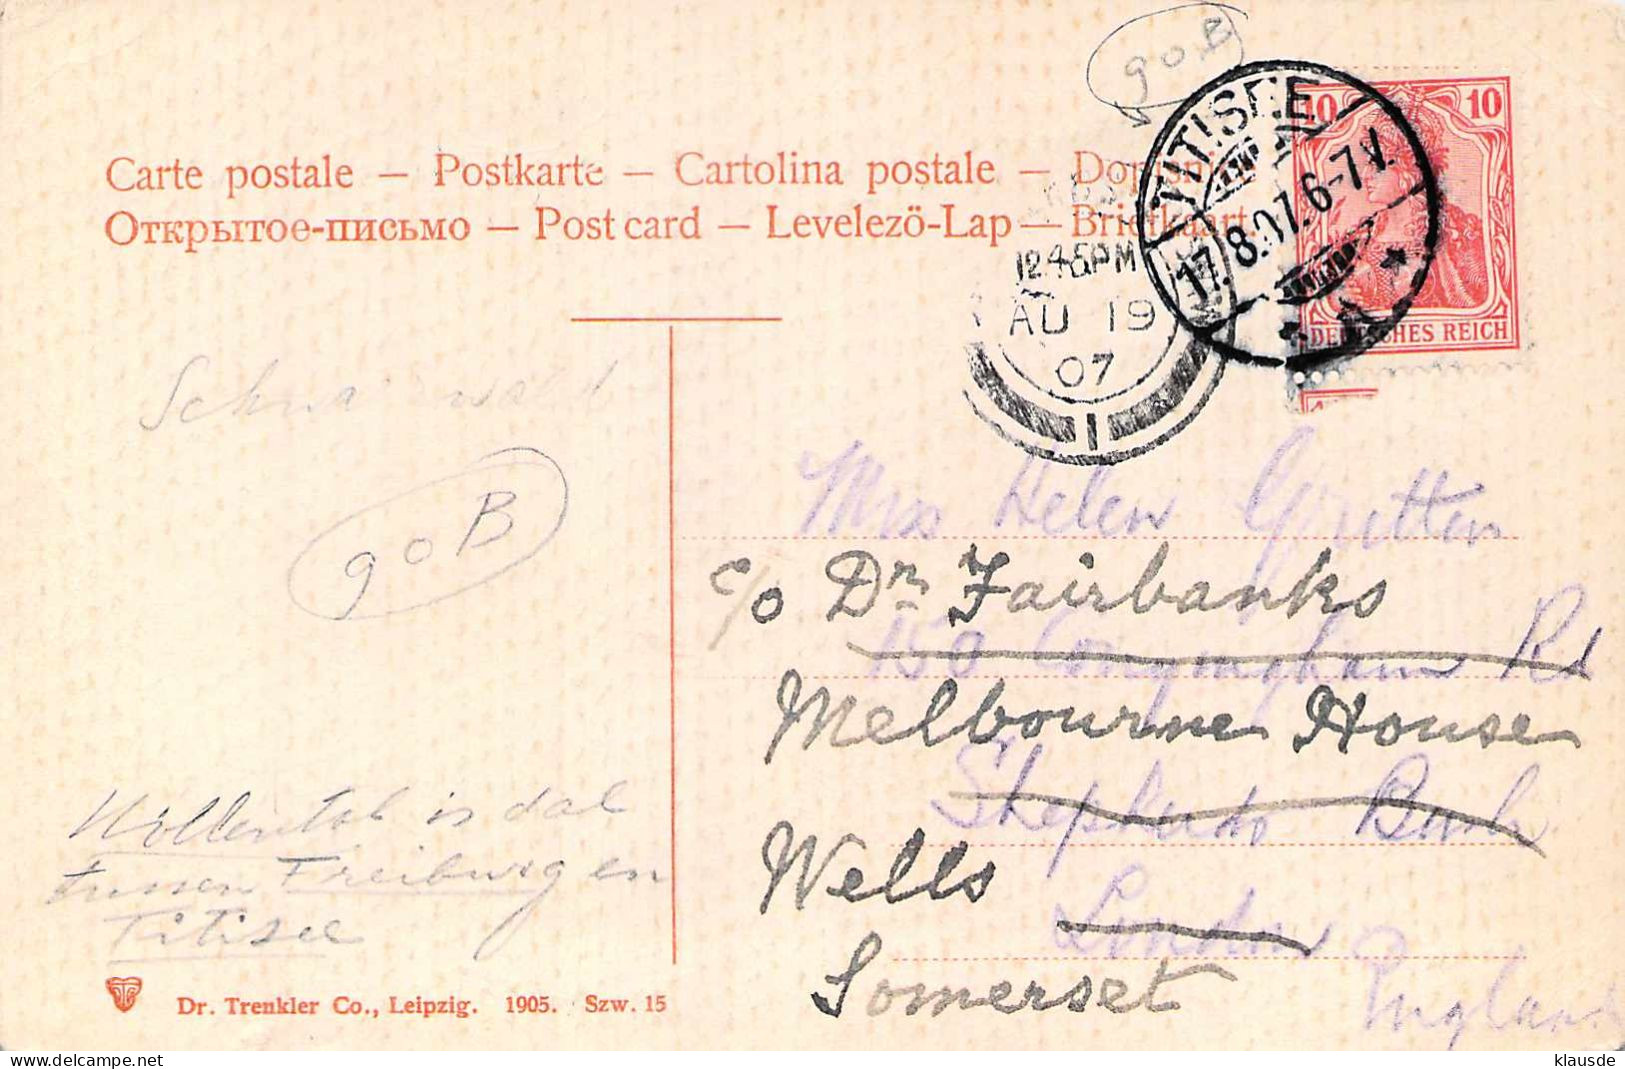 90B
10 10
TITISEE
17.8.07.6-7V.
DEUTSCHES REICH
Carte postale — Postkarte — Cartolina postale —
Открытое-письмо — Post card — Levelező-Lap — Briefkaart
12.45PM
AU 19
07
1
Schwarzwald
90B
Mrs Helen
c/o Dr. Fairbanks
150 Conyngham Rd
Melbourne House
Shepherds Bush
Wells
London
Somerset
England
Höllental is dal
tussen Freiburg en
Titisee
Dr. Trenkler Co., Leipzig. 1905. Szw. 15
klausde